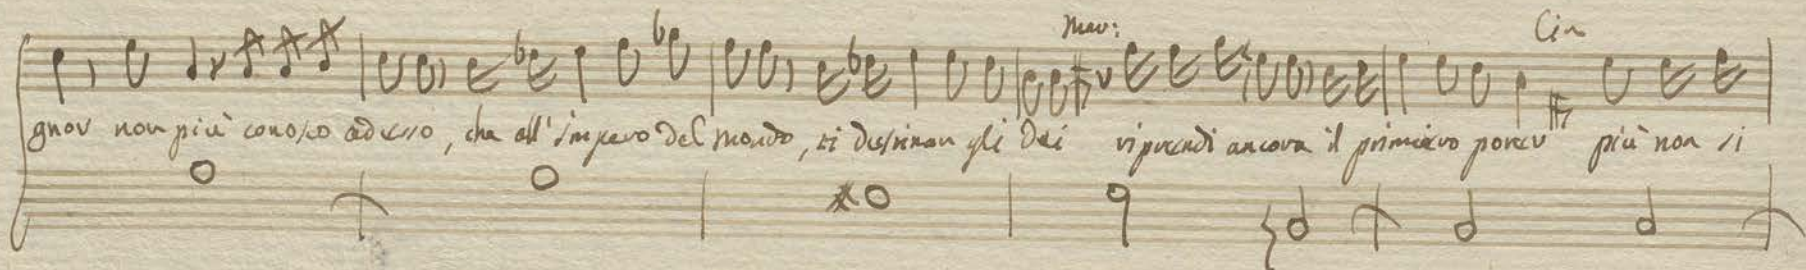 Mar: Cin
gnor non più conosco adesso, che all'impero del mondo, ti destinan gli Dei riprendi ancora il primiero poter più non si